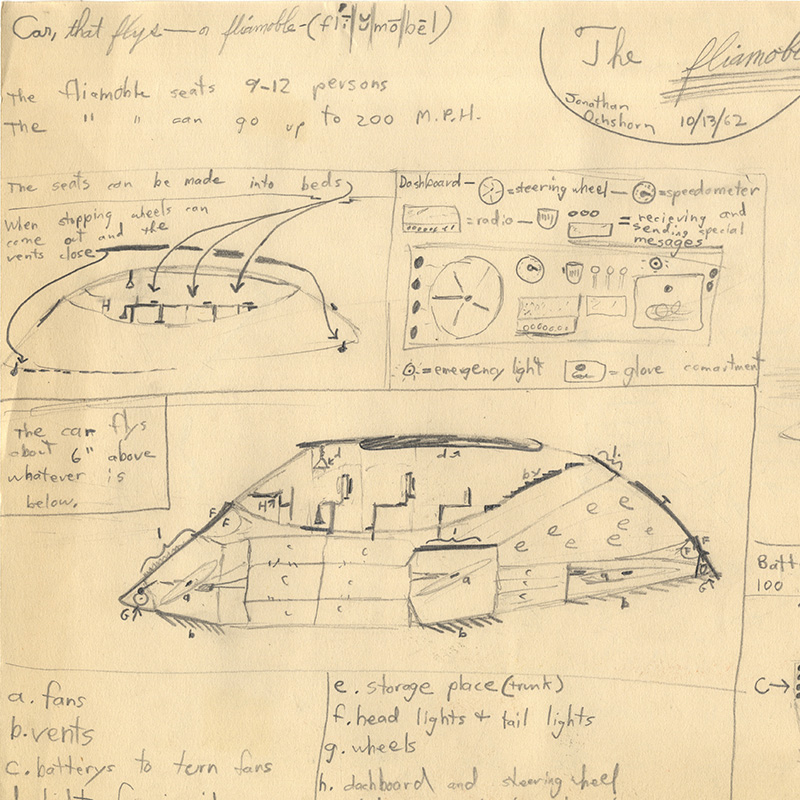 Car, that flys — or fliamoble - (flī|ŭ|mō|bēl)
The fliamoble seats 9-12 persons
The " " can go up to 200 M.P.H.
The fliamobl
Jonathan
Ochshorn 10/13/62
The seats can be made into beds
When stopping wheels can
come out and the
vents close
H
Dashboard — = steering wheel — = speedometer
= radio — = recieving and
sending special
mesages
= emergency light = glove comartment
The car flys
about 6" above
whatever is
below.
d d b i
H F F
e e e e e e e
i i F
c c c c c c c
a a a
G b b b G
Batt
100
C→
a. fans
b. vents
c. batterys to turn fans
e. storage place (trunk)
f. head lights + tail lights
g. wheels
h. dachboard and steering wheel